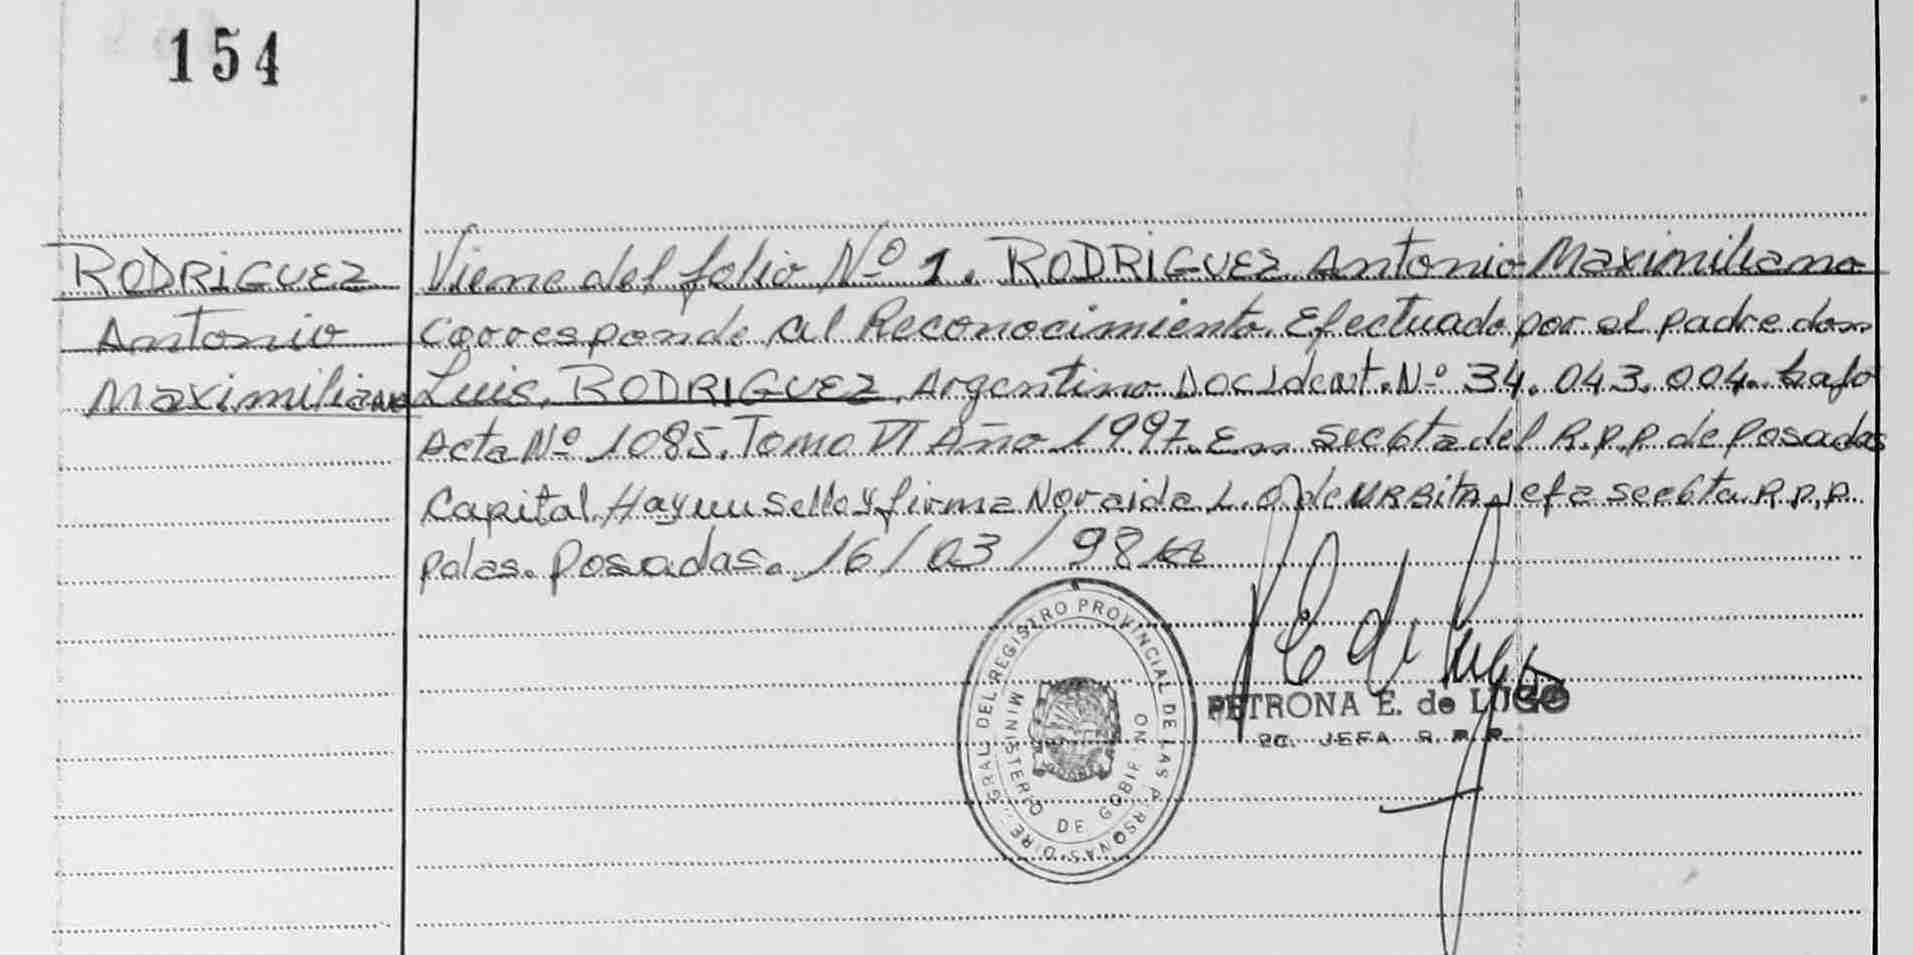 154
RODRIGUEZ
Antonio
Maximiliano
Viene del folio Nº 1. RODRIGUEZ Antonio Maximiliano
Corresponde al Reconocimiento. Efectuado por el padre don
Luis. RODRIGUEZ. Argentino Doc Ident. Nº 34.043.004. bajo
Acta Nº 1085. Tomo VI Año 1997. En secc 6ta del R.P.P. de Posadas
Capital. Hay un Sello y firma Noraida L. O. de URBITA Jefa secc 6ta. R.P.P.
Posadas. 16/03/98
DIRE. GRAL DEL REGISTRO PROVINCIAL DE LAS P RSONAS
MINISTERIO DE GOBIE NO
MISIONES
PETRONA E. de LUGO
JEFA R. P. P.